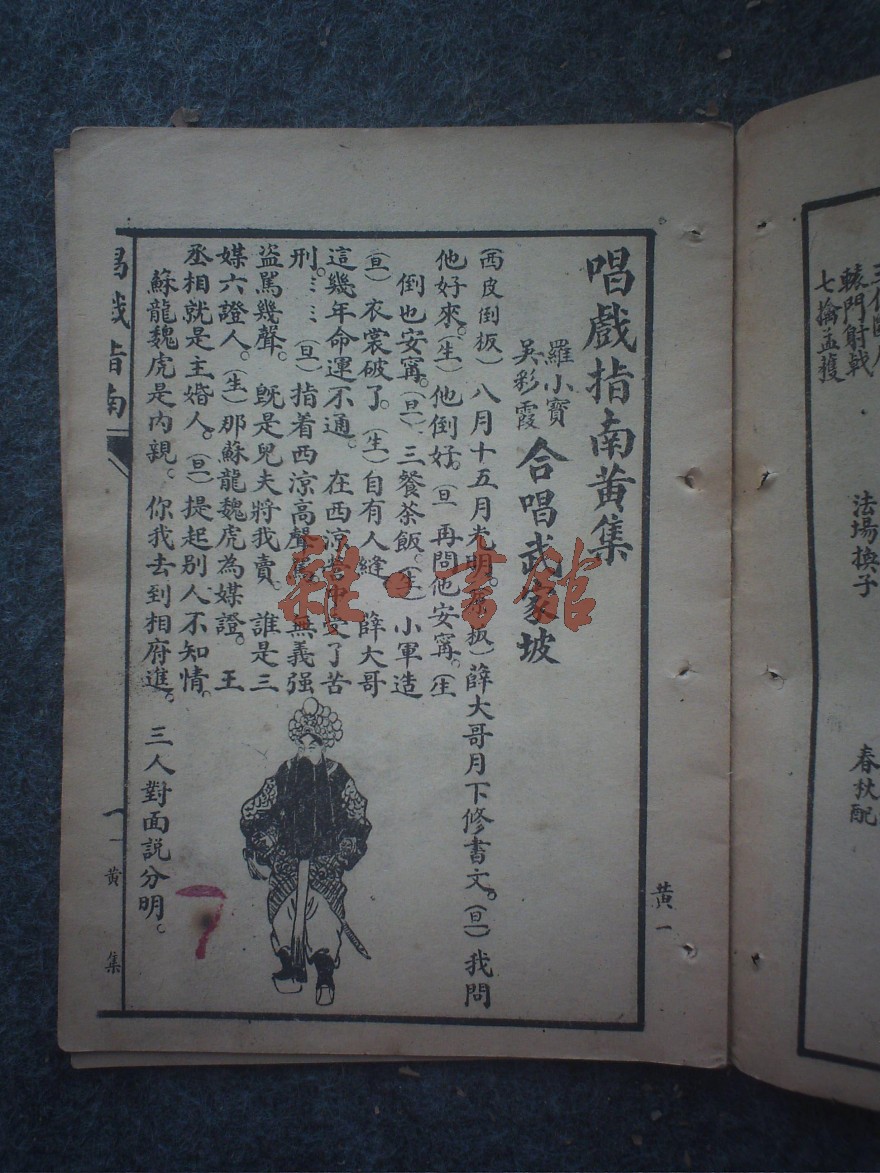 轅門射戟
七擒孟獲
法場換子
春秋配
黃一
唱戲指南黃集
羅小寶
吳彩霞
合唱武家坡
(西皮倒板)八月十五月光明。(原板)薛大哥月下修書文。(旦)我問
他好來。(生)他倒好。(旦再問他安寗。(生
倒也安寗。(旦)三餐茶飯。(生)小軍造
(旦)衣裳破了。(生)自有人縫 薛大哥
這幾年命運不通。在西涼營中受了苦
刑。⋮⋮(旦)指着西涼高聲罵 無義强
盜罵幾聲。旣是兒夫將我賣。誰是三
媒六證人。(生)那蘇龍魏虎為媒證。王
丞相就是主婚人。(旦)提起别人不知情。
蘇龍魏虎是內親。你我去到相府進。三人對面說分明。
唱戲指南 一 黃集
7
雜·書館